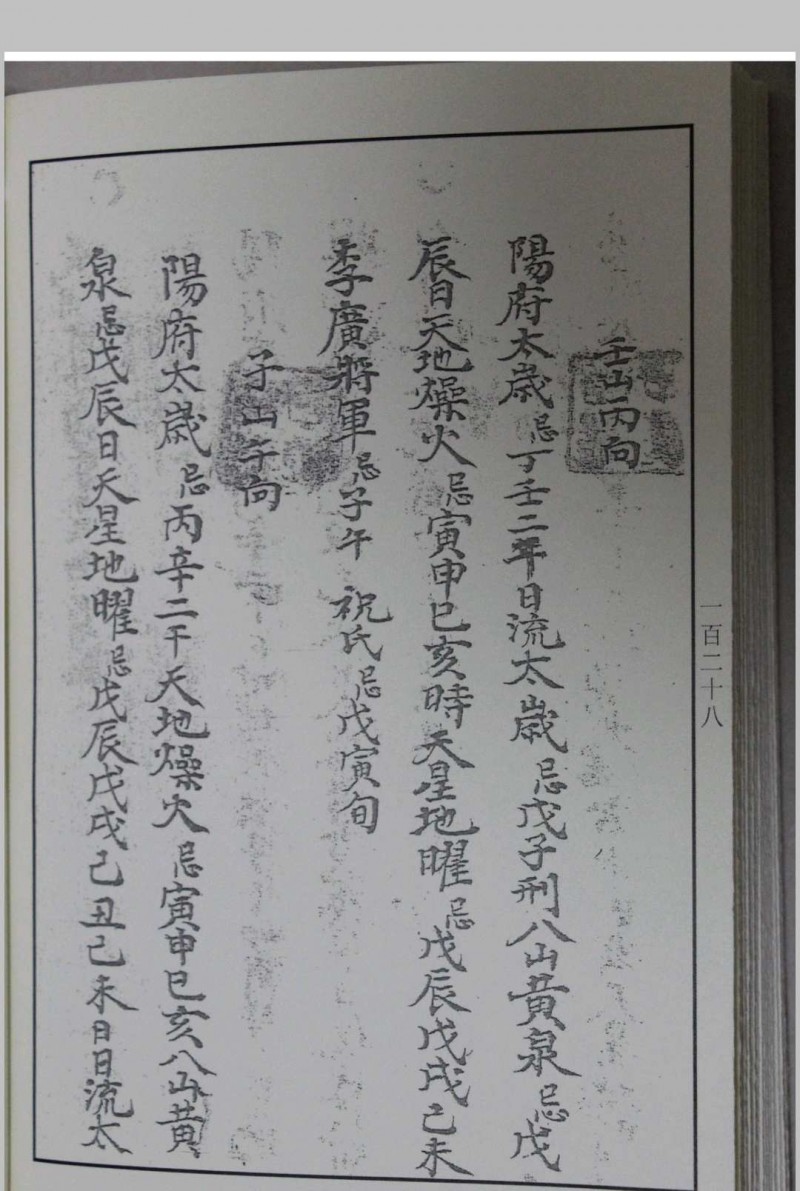 壬山丙向
陽府太歲忌丁壬二年日流太歲忌戊子刑八山黄泉忌戊
辰日天地燥火忌寅申巳亥時天星地曜忌戊辰戊戌己未
李廣將軍忌子午 祝氏忌戊寅旬
子山午向
陽府太歲忌丙辛二干天地燥火忌寅申巳亥八山黄
泉忌戊辰日天星地曜忌戊辰戊戌己丑己未日日流太
一百二十八